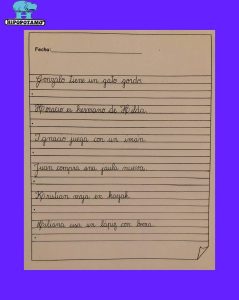 HIPOPOTAMO
Fecha:
Gonzalo tiene un gato gordo.
Horacio es hermano de Hilda.
Ignacio juega con un imán.
Juan compra una jaula nueva.
Kristian viaja en kayak.
usa un lápiz con